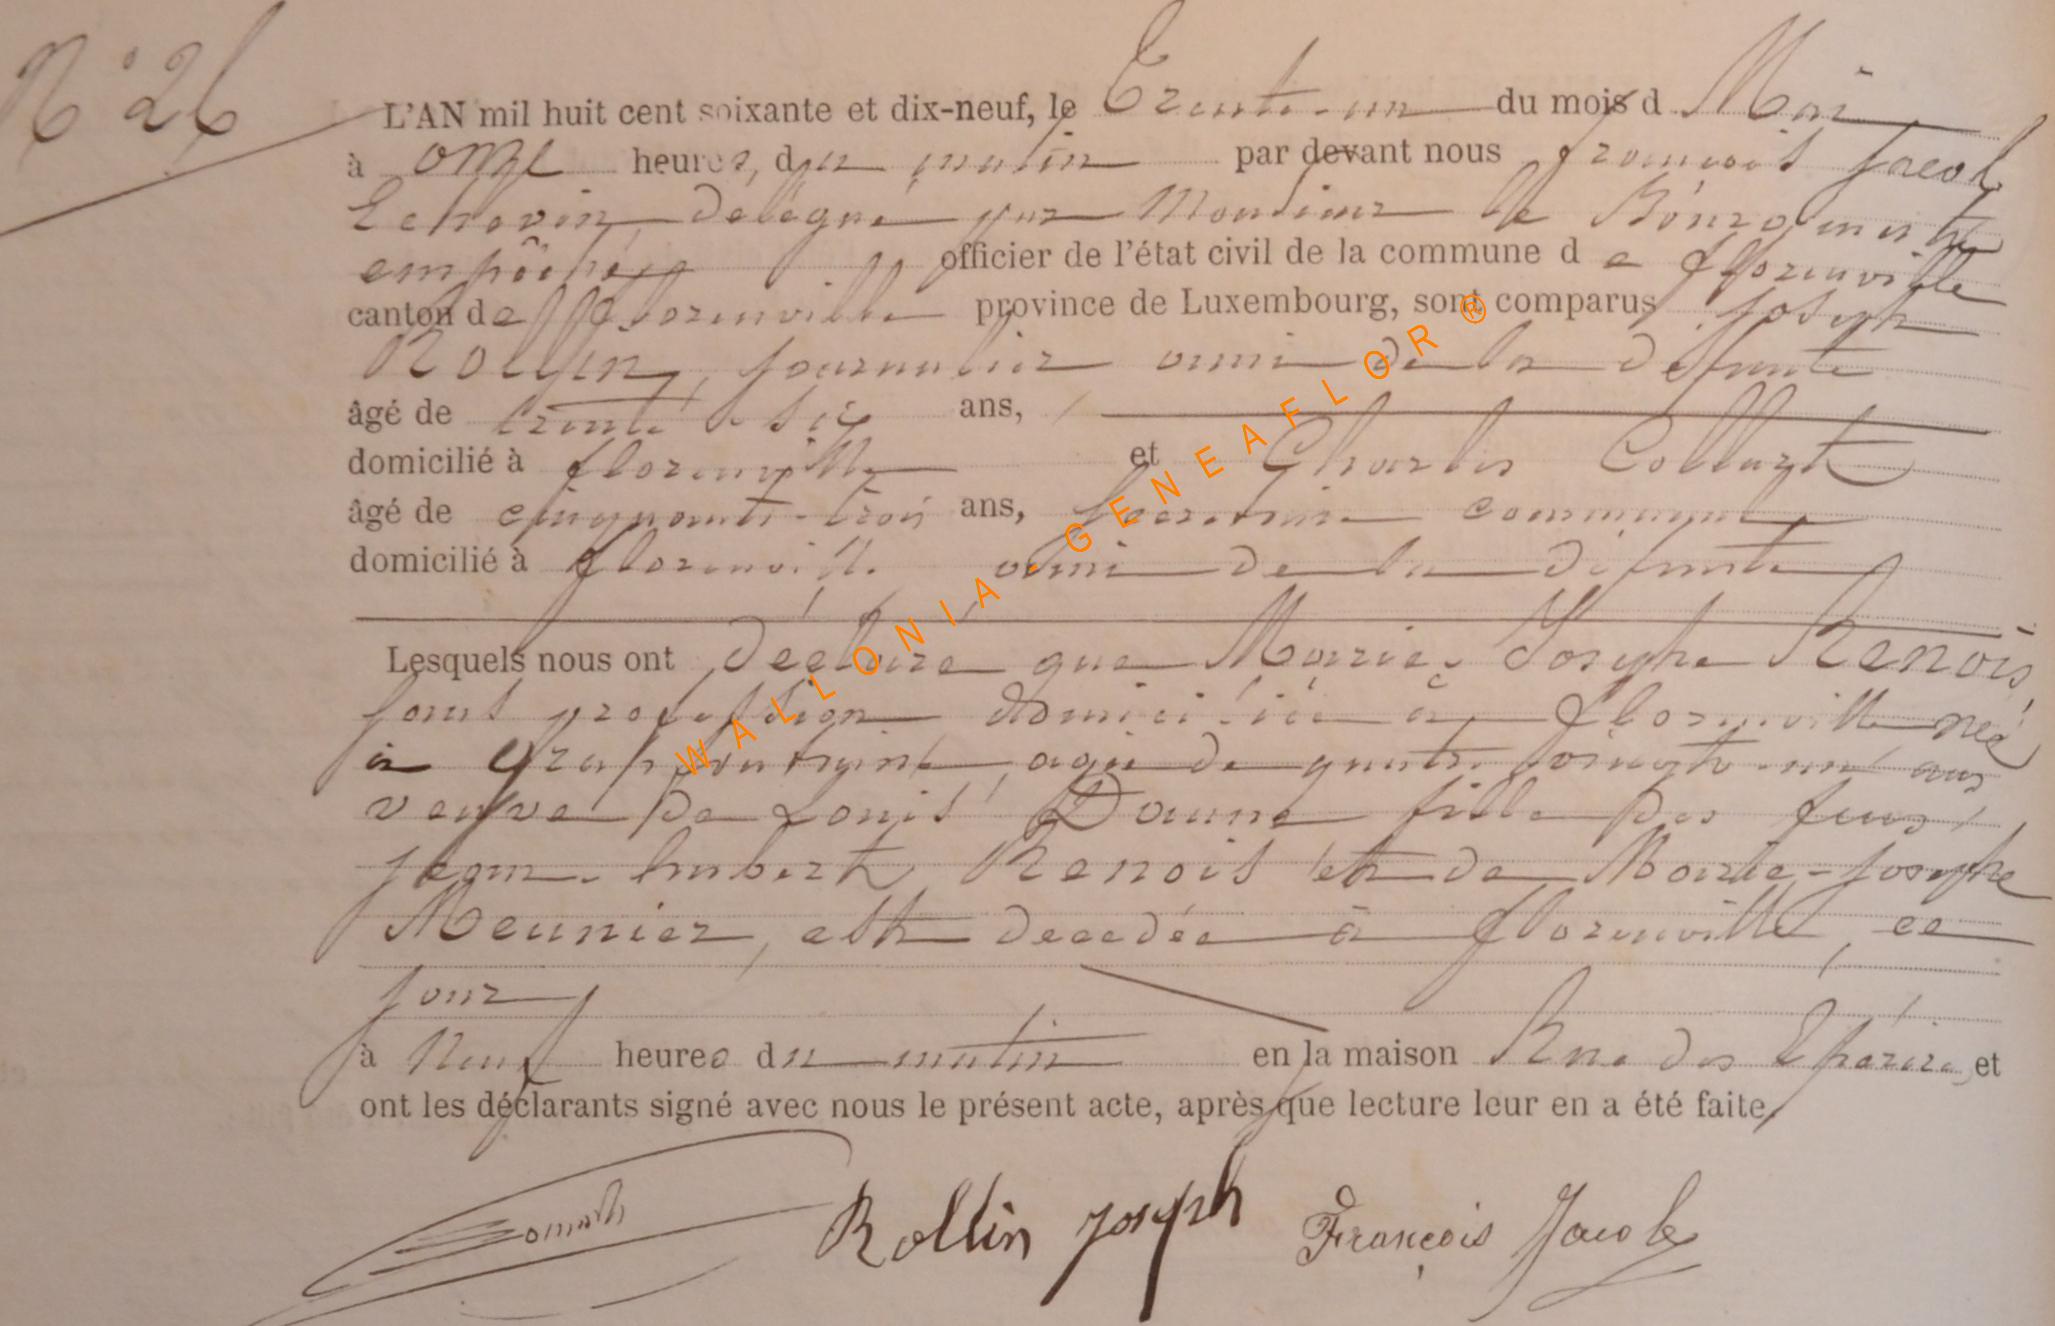 N° 26
L'AN mil huit cent soixante et dix-neuf, le Trente-un du mois d Mai
à onze heures, du matin par devant nous françois Jacob
Echevin délégué par Monsieur le Bourgmestre
empêché officier de l'état civil de la commune de florenville
canton de florenville province de Luxembourg, sont comparus Joseph
Rollin, journalier ami de la défunte
âgé de trente six ans,
domicilié à florenville et Charles Collart
âgé de cinquante-trois ans, Secrétaire communal
domicilié à florenville ami de la défunte
Lesquels nous ont déclaré que Marie Josephe Renois
sans profession domiciliée à florenville née
à agée de quatre vingt-un ans
veuve de Louis Daune fille des feus
Jean-hubert Renois et de Marie-Josephe
Meunier, est decedée à florenville, ce
jour
à Neuf heures du matin en la maison Rue des et
ont les déclarants signé avec nous le présent acte, après que lecture leur en a été faite.
Rollin Joseph François Jacob
WALLONIA - GENEAFLOR ®